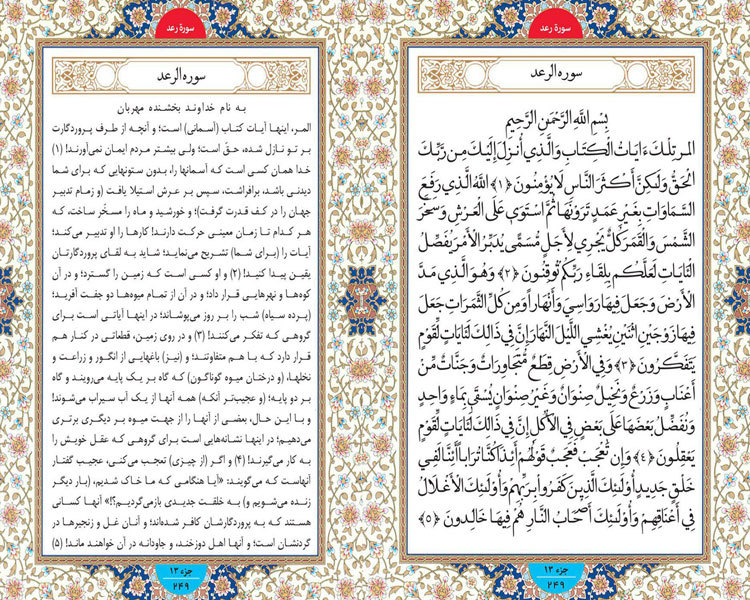 سورة رعد
سوره الرعد
بِسْمِ اللَّهِ الرَّحْمَٰنِ الرَّحِيمِ
المر تِلْكَ ءَايَاتُ الْكِتَابِ وَالَّذِي أُنزِلَ إِلَيْكَ مِن رَّبِّكَ
الْحَقُّ وَلَٰكِنَّ أَكْثَرَ النَّاسِ لَا يُؤْمِنُونَ ﴿١﴾ اللَّهُ الَّذِي رَفَعَ
السَّمَاوَاتِ بِغَيْرِ عَمَدٍ تَرَوْنَهَا ثُمَّ اسْتَوَى عَلَى الْعَرْشِ وَسَخَّرَ
الشَّمْسَ وَالْقَمَرَ كُلٌّ يَجْرِي لِأَجَلٍ مُّسَمًّى يُدَبِّرُ الْأَمْرَ يُفَصِّلُ
الْآيَاتِ لَعَلَّكُم بِلِقَاءِ رَبِّكُمْ تُوقِنُونَ ﴿٢﴾ وَهُوَ الَّذِي مَدَّ
الْأَرْضَ وَجَعَلَ فِيهَا رَوَاسِيَ وَأَنْهَارًا وَمِن كُلِّ الثَّمَرَاتِ جَعَلَ
فِيهَا زَوْجَيْنِ اثْنَيْنِ يُغْشِي اللَّيْلَ النَّهَارَ إِنَّ فِي ذَٰلِكَ لَآيَاتٍ لِّقَوْمٍ
يَتَفَكَّرُونَ ﴿٣﴾ وَفِي الْأَرْضِ قِطَعٌ مُّتَجَاوِرَاتٌ وَجَنَّاتٌ مِّنْ
أَعْنَابٍ وَزَرْعٌ وَنَخِيلٌ صِنْوَانٌ وَغَيْرُ صِنْوَانٍ يُسْقَى بِمَاءٍ وَاحِدٍ
وَنُفَضِّلُ بَعْضَهَا عَلَى بَعْضٍ فِي الْأُكُلِ إِنَّ فِي ذَٰلِكَ لَآيَاتٍ لِّقَوْمٍ
يَعْقِلُونَ ﴿٤﴾ وَإِن تَعْجَبْ فَعَجَبٌ قَوْلُهُمْ أَئِذَا كُنَّا تُرَابًا أَئِنَّا لَفِي
خَلْقٍ جَدِيدٍ أُولَٰئِكَ الَّذِينَ كَفَرُوا بِرَبِّهِمْ وَأُولَٰئِكَ الْأَغْلَالُ
فِي أَعْنَاقِهِمْ وَأُولَٰئِكَ أَصْحَابُ النَّارِ هُمْ فِيهَا خَالِدُونَ ﴿٥﴾
جزء ۱۳
۲۴۹
سورة رعد
سوره الرعد
به نام خداوند بخشنده مهربان
المر، اینها آیات کتاب (آسمانی) است؛ و آنچه از طرف پروردگارت
بر تو نازل شده، حق است؛ ولی بیشتر مردم ایمان نمی‌آورند! (۱)
خدا همان کسی است که آسمانها را، بدون ستونهایی که برای شما
دیدنی باشد، برافراشت، سپس بر عرش استیلا یافت (و زمام تدبیر
جهان را در کف قدرت گرفت)؛ و خورشید و ماه را مسخّر ساخت، که
هر کدام تا زمان معینی حرکت دارند! کارها را او تدبیر می‌کند؛
آیات را (برای شما) تشریح می‌نماید؛ شاید به لقای پروردگارتان
یقین پیدا کنید! (۲) و او کسی است که زمین را گسترد؛ و در آن
کوه‌ها و نهرهایی قرار داد؛ و در آن از تمام میوه‌ها دو جفت آفرید؛
(پرده سیاه) شب را بر روز می‌پوشاند؛ در اینها آیاتی است برای
گروهی که تفکر می‌کنند! (۳) و در روی زمین، قطعاتی در کنار هم
قرار دارد که با هم متفاوتند؛ و (نیز) باغهایی از انگور و زراعت و
نخلها، (و درختان میوه گوناگون) که گاه بر یک پایه می‌رویند و گاه
بر دو پایه؛ (و عجیب‌تر آنکه) همه آنها از یک آب سیراب می‌شوند!
و با این حال، بعضی از آنها را از جهت میوه بر دیگری برتری
می‌دهیم؛ در اینها نشانه‌هایی است برای گروهی که عقل خویش را
به کار می‌گیرند! (۴) و اگر (از چیزی) تعجب می‌کنی، عجیب گفتار
آنهاست که می‌گویند: «آیا هنگامی که ما خاک شدیم، (بار دیگر
زنده می‌شویم و) به خلقت جدیدی بازمی‌گردیم؟!» آنها کسانی
هستند که به پروردگارشان کافر شده‌اند؛ و آنان غل و زنجیرها در
گردنشان است؛ و آنها اهل دوزخند، و جاودانه در آن خواهند ماند! (۵)
جزء ۱۳
۲۴۹